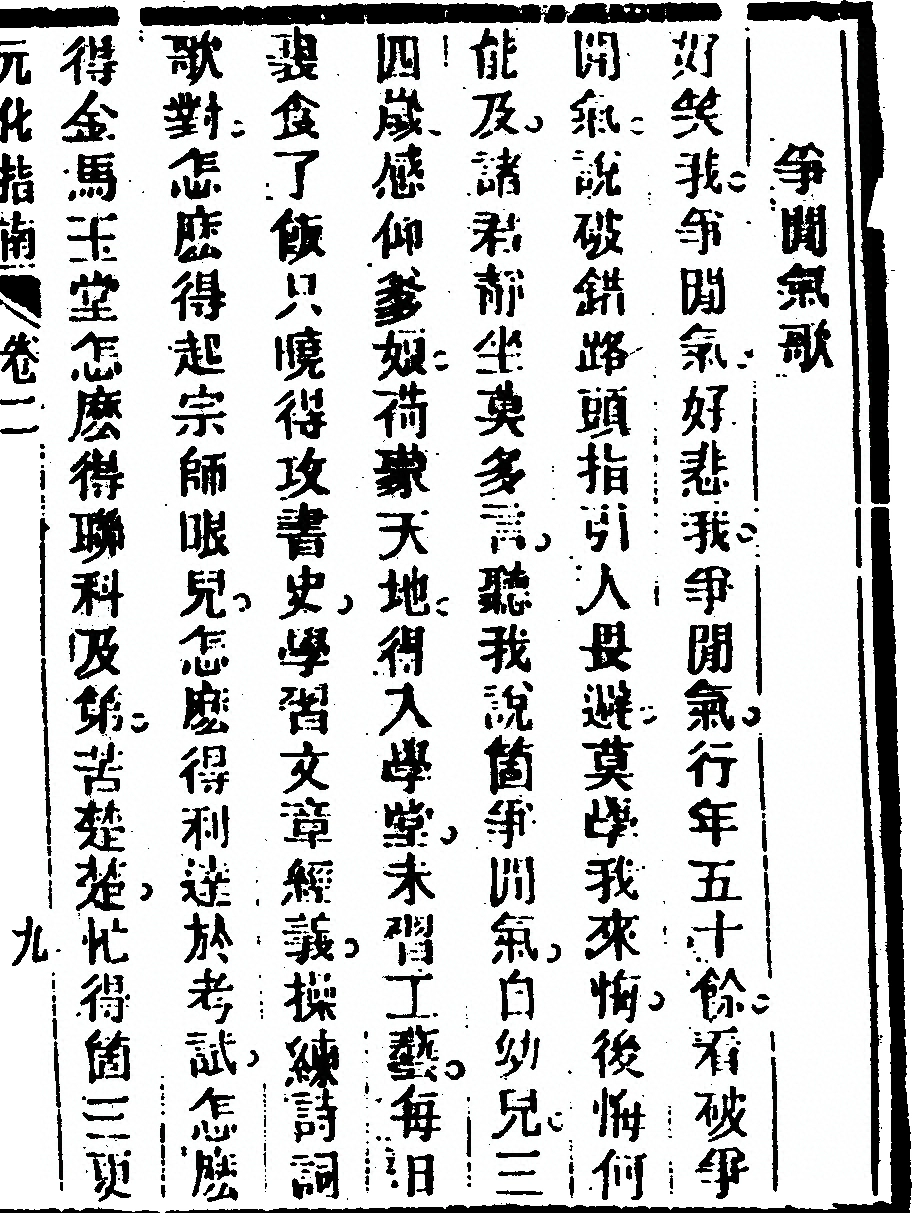 爭閒氣歌
好笑我爭閒氣好悲我爭閒氣行年五十餘看破爭
閒氣說破錯路頭指引人畏避莫學我來悔後悔何
能及諸君靜坐莫多言聽我說箇爭閒氣自幼兒三
四歲感仰爹娘荷蒙天地得入學堂未習工藝每日
裏食了飯只曉得攻書史學習文章經義操練詩詞
歌對怎麽得起宗師眼兒怎麽得利達於考試怎麽
得金馬玉堂怎麽得聯科及第苦楚楚忙得箇三更
元化指南 卷二 九